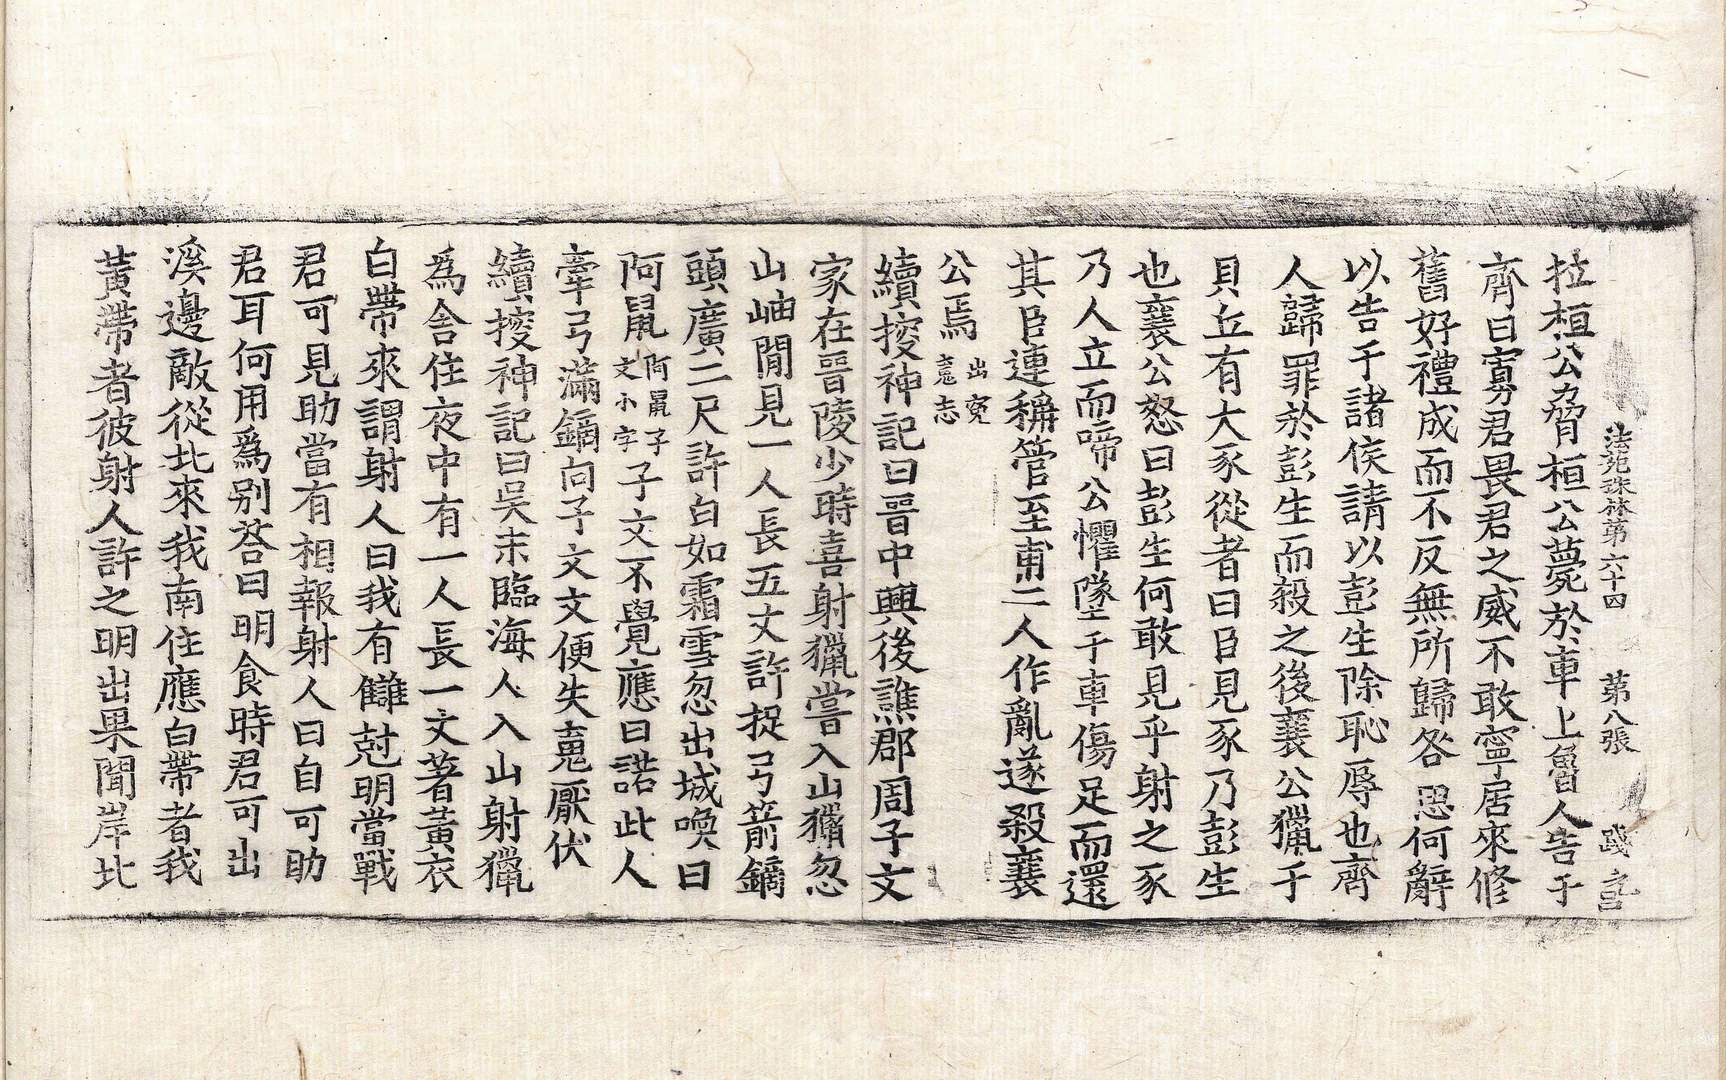 法苑珠林第六十四 第八張 踐言
拉桓公脅桓公薨於車上魯人告于
齊曰寡君畏君之威不敢寧居來修
舊好禮成而不反無所歸咎惡何辭
以告于諸侯請以彭生除恥辱也齊
人歸罪於彭生而殺之後襄公獵于
貝丘有大豕從者曰臣見豕乃彭生
也襄公怒曰彭生何敢見乎射之豕
乃人立而啼公懼墜于車傷足而還
其臣連稱管至甫二人作亂遂殺襄
公焉出寃䰟志
續搜神記曰晉中興後譙郡周子文
家在晉陵少時喜射獵嘗入山獵忽
山岫間見一人長五丈許捉弓箭鏑
頭廣二尺許白如霜雪忽出城喚曰
阿鼠阿鼠子文小字子文不覺應曰諾此人
牽弓滿鏑向子文文便失䰟厭伏
續搜神記曰吳末臨海人入山射獵
爲舍住夜中有一人長一丈著黃衣
白帶來謂射人曰我有讎剋明當戰
君可見助當有相報射人曰自可助
君耳何用爲別荅曰明食時君可出
溪邊敵從北來我南住應白帶者我
黃帶者彼射人許之明出果聞岸北